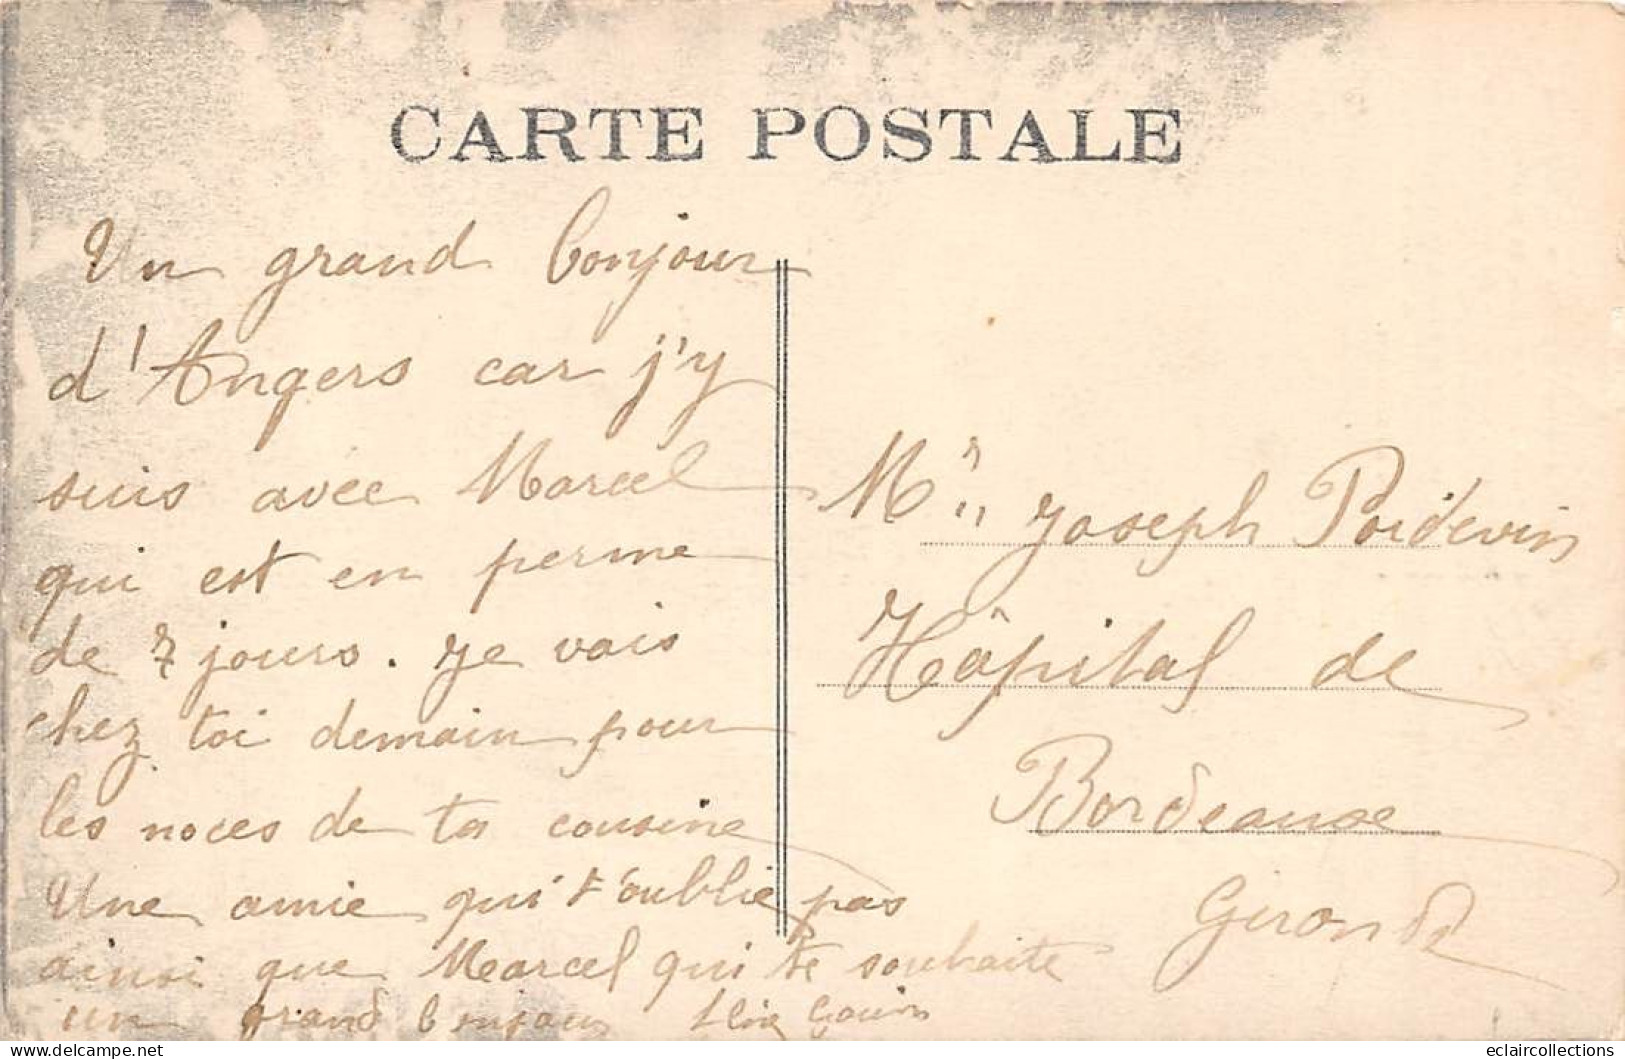 CARTE POSTALE
Un grand bonjour
d'Angers car j'y
suis avec Marcel
qui est en perme
de 7 jours. Je vais
chez toi demain pour
les noces de ta cousine
Une amie qui t'oublie pas
ainsi que Marcel qui te souhaite
un grand bonjour
Mr Joseph Poidevin
Hôpital de
Bordeause
Gironde
eclaircollections